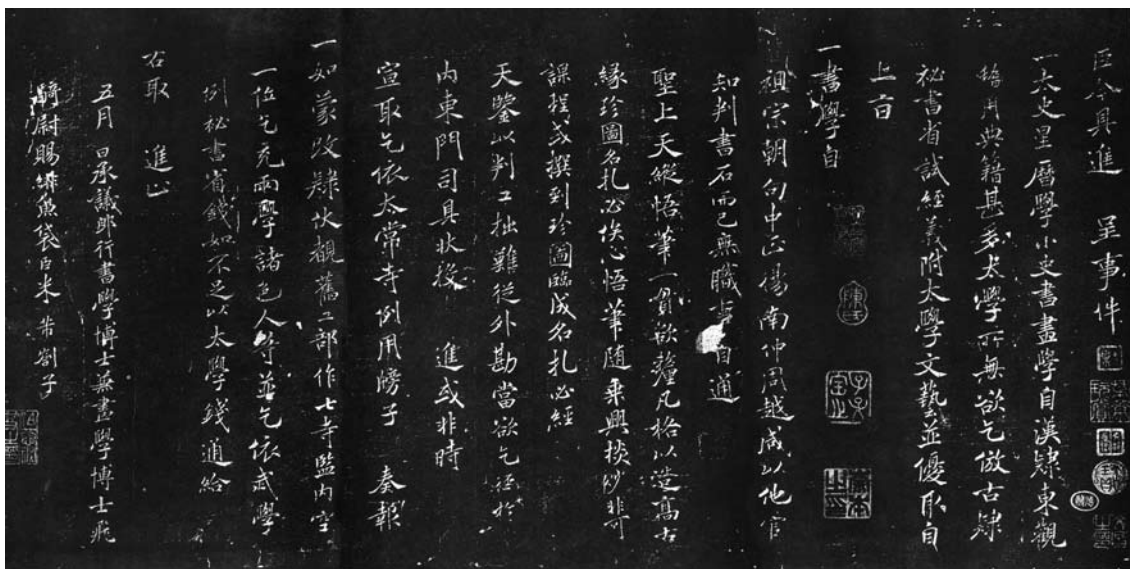 臣今具進　呈事件
一太史星曆學小史書畫學自漢隸東觀
舊用典籍甚多太學所無欲乞倣古隸
秘書省試經義附太學文藝並優取自
上旨
一書學自
祖宗朝句中正楊南仲周越咸以他官
知判書石而已無職事自通
聖上天縱悟筆一貫欲釐凡格以造高古
緣珍圖名札必俟心悟筆隨乘興掞妙非可
課程或撰到珍圖臨成名札必經
天鑒以判工拙難從外勘當欲乞徑於
內東門司具狀投　進或非時
宣取乞依太常寺例用牓子　奏報
一如蒙改隸伏覩舊工部作七寺監內空
一位乞充兩學諸色人等並乞依武學
例秘書省錢如不足以太學錢通給
右取　進止
五月　日承議郎行書學博士兼畫學博士飛
騎尉賜緋魚袋臣米芾劄子